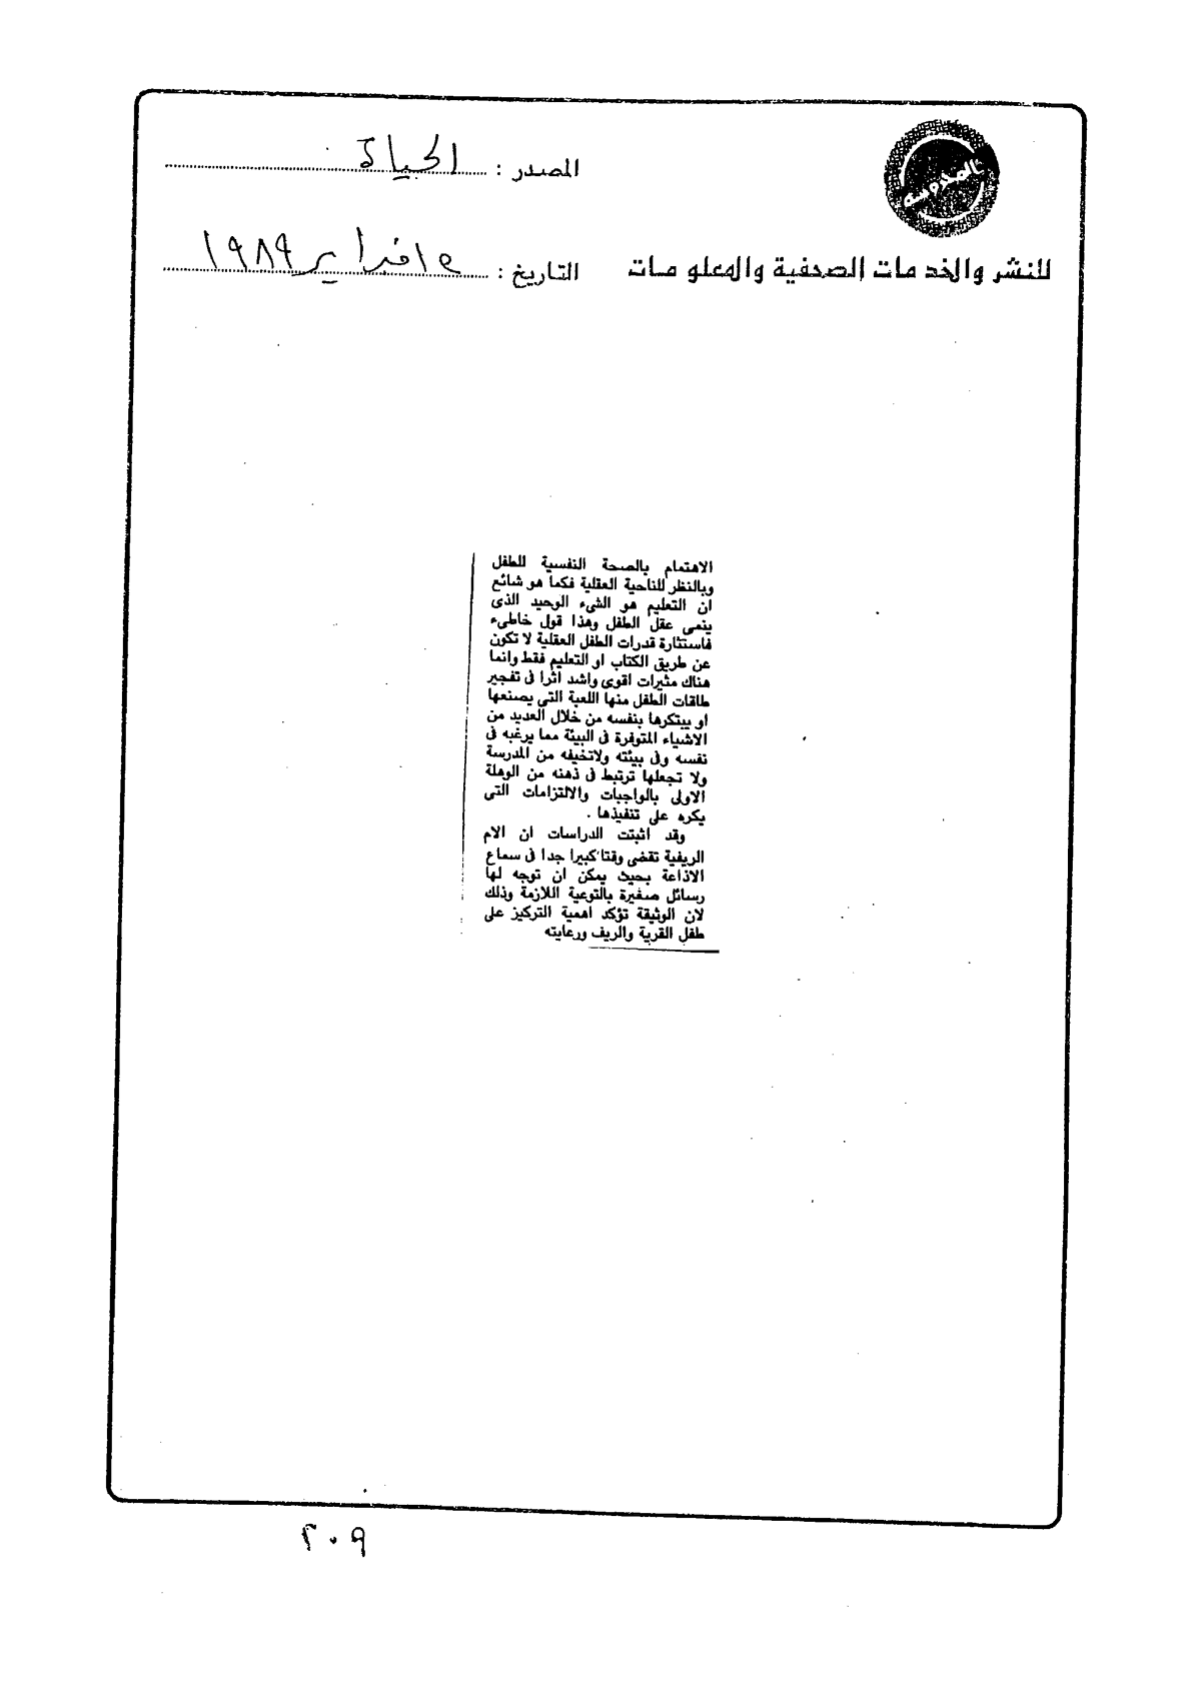 المصدر : الحياة
للنشر والخدمات الصحفية والمعلومات
التاريخ : ١٥ فبراير ١٩٨٩
الاهتمام بالصحة النفسية للطفل
وبالنظر للناحية العقلية فكما هو شائع
ان التعليم هو الشىء الوحيد الذى
ينمى عقل الطفل وهذا قول خاطىء
فاستثارة قدرات الطفل العقلية لا تكون
عن طريق الكتاب او التعليم فقط وانما
هناك مثيرات اقوى واشد اثرا فى تفجير
طاقات الطفل منها اللعبة التى يصنعها
او يبتكرها بنفسه من خلال العديد من
الاشياء المتوفرة فى البيئة مما يرغبه فى
نفسه وفى بيئته ولاتخيفه من المدرسة
ولا تجعلها ترتبط فى ذهنه من الوهلة
الاولى بالواجبات والالتزامات التى
يكره على تنفيذها .
وقد اثبتت الدراسات ان الام
الريفية تقضى وقتا كبيرا جدا فى سماع
الاذاعة بحيث يمكن ان توجه لها
رسائل صغيرة بالتوعية اللازمة وذلك
لان الوثيقة تؤكد اهمية التركيز على
طفل القرية والريف ورعايته
٢٠٩